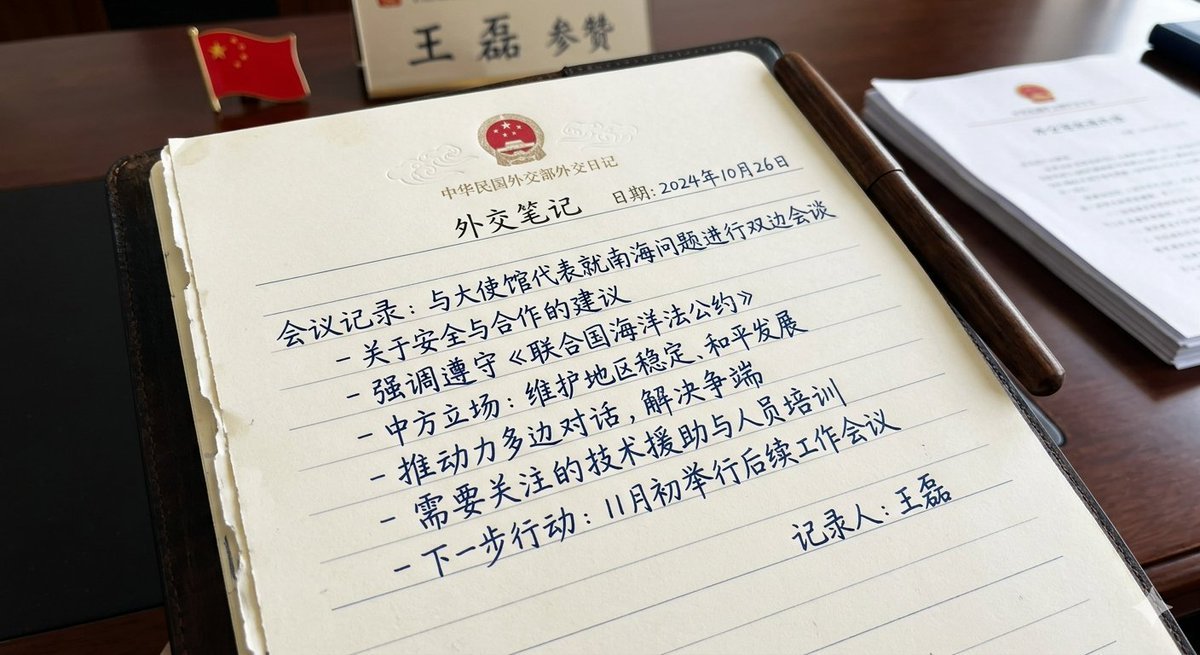 王磊 参赞
中华民国外交部外交日记
外交笔记
日期: 2024年10月26日
会议记录：与大使馆代表就南海问题进行双边会谈
- 关于安全与合作的建议
- 强调遵守《联合国海洋法公约》
- 中方立场：维护地区稳定、和平发展
- 推动力多边对话，解决争端
- 需要关注的技术援助与人员培训
- 下一步行动：11月初举行后续工作会议
记录人：王磊